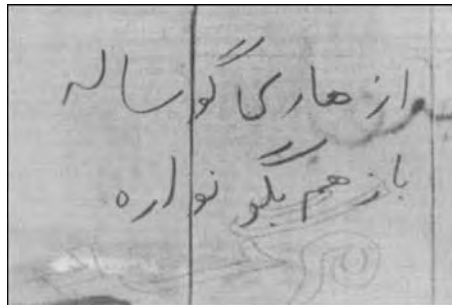 ازهاری گوساله
باز هم بگو نواره